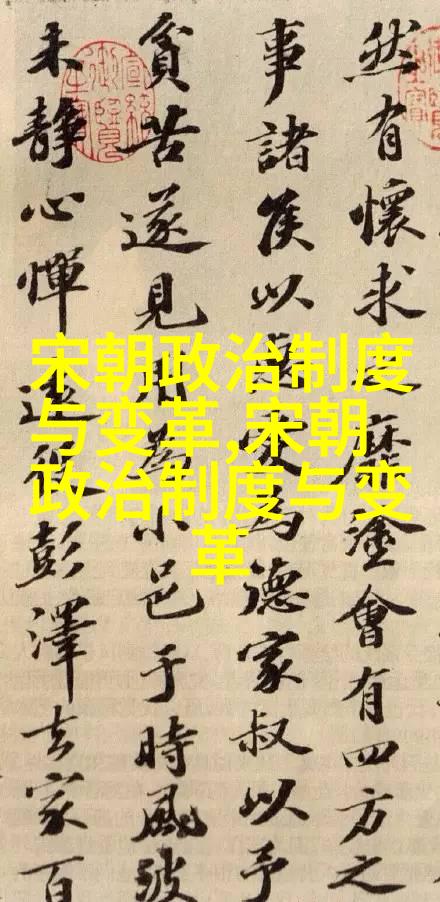 然有懷求之靡塗會有四方之
事諸侯以惠愛為德家叔以予
貧苦遂見用為小邑于時風波
未靜心憚遠役彭澤去家百
宋朝政治制度
与变革,宋朝
政治制度与变
革